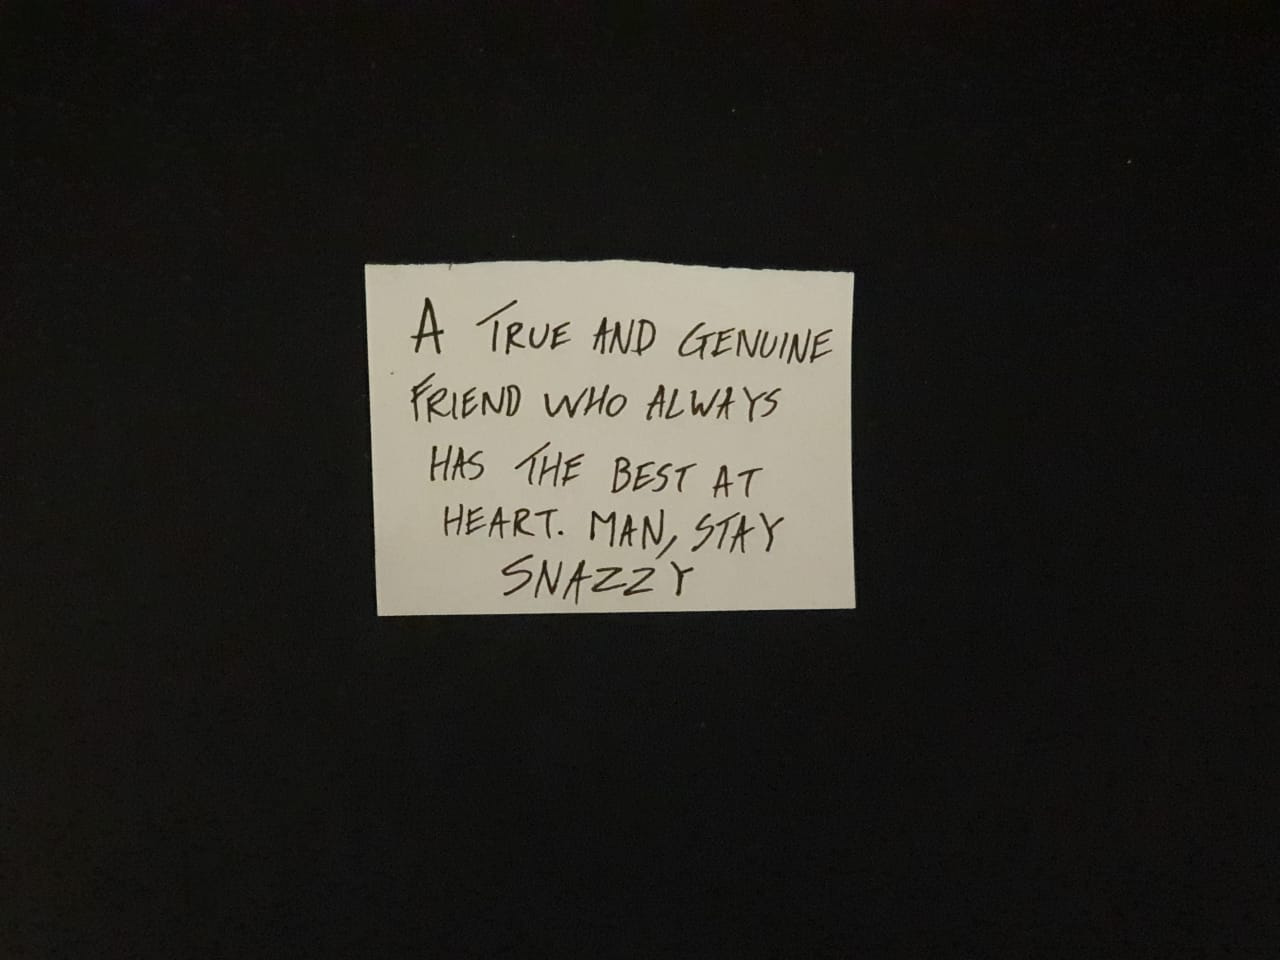 A TRUE AND GENUINE
FRIEND WHO ALWAYS
HAS THE BEST AT
HEART. MAN, STAY
SNAZZY